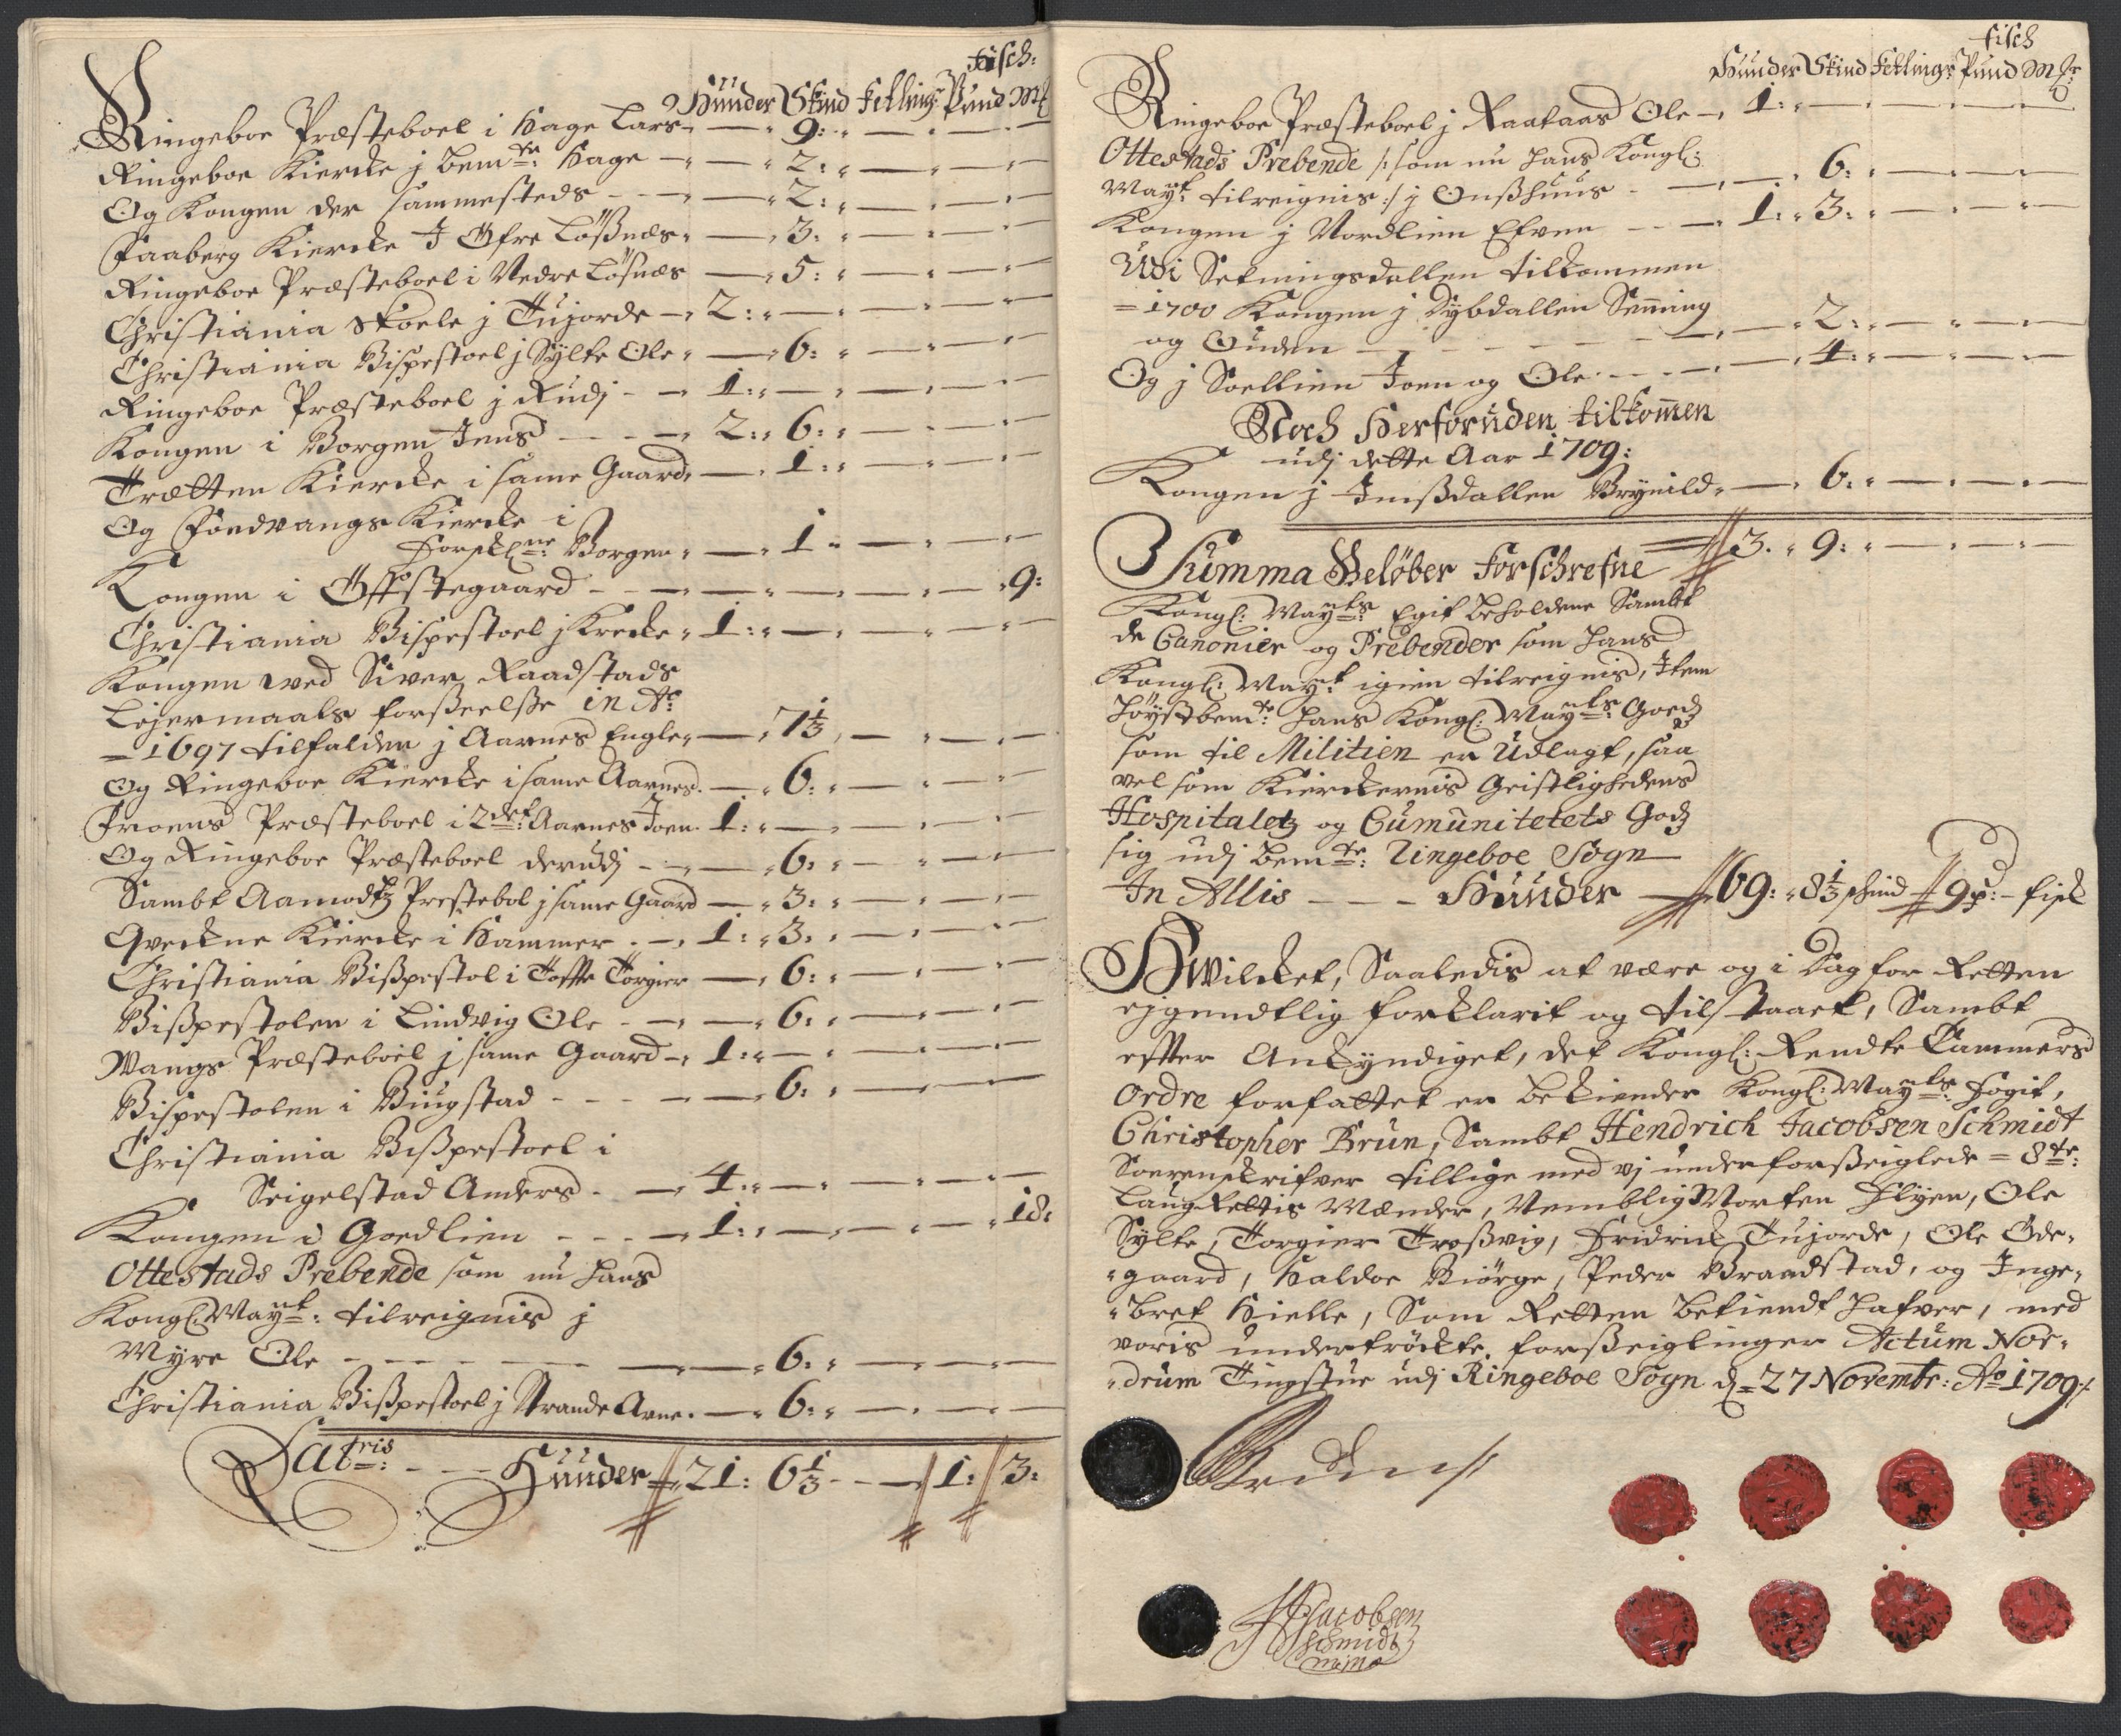 Fisch:
Hünder Skind Fetling: Pund Mk
Ringeboe Præsteboel i Hage Lars — 9: — — —
Ringeboe Kiercke j bemte: Hage — — 2: — — —
Og Kongen der sammesteds — — 2: — — —
Faaberg Kiercke J Øfre Lößnæs — 3: — — —
Ringeboe Præsteboel i Nedre Lösnæs — 5: — — —
Christiania Skoele j Tujorde — 2: — — — —
Christiania Bispestoel j Sylte Ole — 6: — — —
Ringeboe Præsteboel j Rudj — 1: — — — —
Kongen i Borgen Jens — 2: 6: — — —
Trætten Kiercke i same Gaard — 1: — — —
Og Foedvangs Kiercke i
forskne: Borgen — 1 — — —
Kongen i Øffstegaard — — — — — 9:
Christiania Bispestoel j Krecke — 1: — — — —
Kongen wed Siver Raadstads
Leyermaals forßeelße in Ao:
— 1697 tilfalden j Aarnes Engle — 7 1/3 — — —
Og Ringeboe Kiercke i same Aarnes — 6: — — —
Froens Præsteboel i 2det: Aarnes Joen 1: — — — —
Og Ringeboe Præsteboel derudj — 6: — — —
Sambt Aamodtz Prestebol j same Gaard — 3: — — —
Qveckne Kiercke i Hammer — 1: 3: — — —
Christiania Bißpestol i Toffte Torgier — 6: — — —
Bißpestolen i Lindvig Ole — 6: — — —
Wangs Præsteboel j same Gaard — 1: — — — —
Bispestolen i Biugstad — — 6: — — —
Christiania Bißpestoel i
Seigelstad Anders — 4: — — — —
Kongen i Goedlien — 1: — — — 18:
Ottestads Prebende som nu hans
Kongl: Mayt: tilreignis j
Myre Ole — — 6: — — —
Christiania Bißpestoel j Strande Arne — 6: — — —
Latris: — Hünder 21: 6 1/3 — 1: 3:
fisch
Hunder Skind Fetlinger Pund Mkr
Ringeboe Præsteboel j Raataas Ole — 1: — — — —
Ottestads Prebende /: som nu hans Kongl:
Mayt: tilreignis :/ j Onßhuus — 6: — — —
Kongen j Nordlien Efven — 1: 3: — — —
Udi Setningsdallen tilkommen
= 1700 Kongen j Dybdallen Sening
og Guden — — 2: — — —
Og j Soellien Joen og Ole — 4: — — —
Noch Herforuden tilkom̄en
udj dette Aar 1709:
Kongen j Imßdallen Brynild — 6: — — —
Summa Beløber Forschrefne 3. 9: — — —
Kongl: Mayts: Egit beholdene Sambt
de Canonier og Prebender som hans
Kongl: Mayt igien tilreignis, Item
høystbemte: hans Kongl: Mayts: Goedz
som til Militien er Udlagt, saa
vel som Kierckernis Geistlighedens
Hospitaletz og Cumunitetets Godz
sig udj bemte: Ringeboe Sogn
In Allis — — Hünder — 69: 8 1/3 skind 9 p: — fisk
Hvilcket, Saaledis at være og i Dag for Retten
eygendtlig forklarit og tilstaaet, Sambt
effter Ankyndiget, det Kongl: Rendte Cammers
Ordre forfattet er bekiender Kongl: Mayts: fogit,
Christopher Brun, Sambt Hendrich Jacobsen Schmidt
Sorenskrifver tillige med vj underforßeiglede = 8te:
Laug Rettis Mænder, Nemblig Morten Flyen, Ole
Sylte, Torgier Troßvig, Fridrick Tujorde, Ole Ode-
-gaard, Haldoe Biørge, Peder Braadstad, og Inge-
-bret Hielle, Som Retten betiendt hafver, med
voris undertröckte forßeiglinger Actum Nor-
-drum Tingstue udj Ringeboe Sogn d= 27 Novembr: Ao 1709:/
HJacobsen
Schmidt
mpria